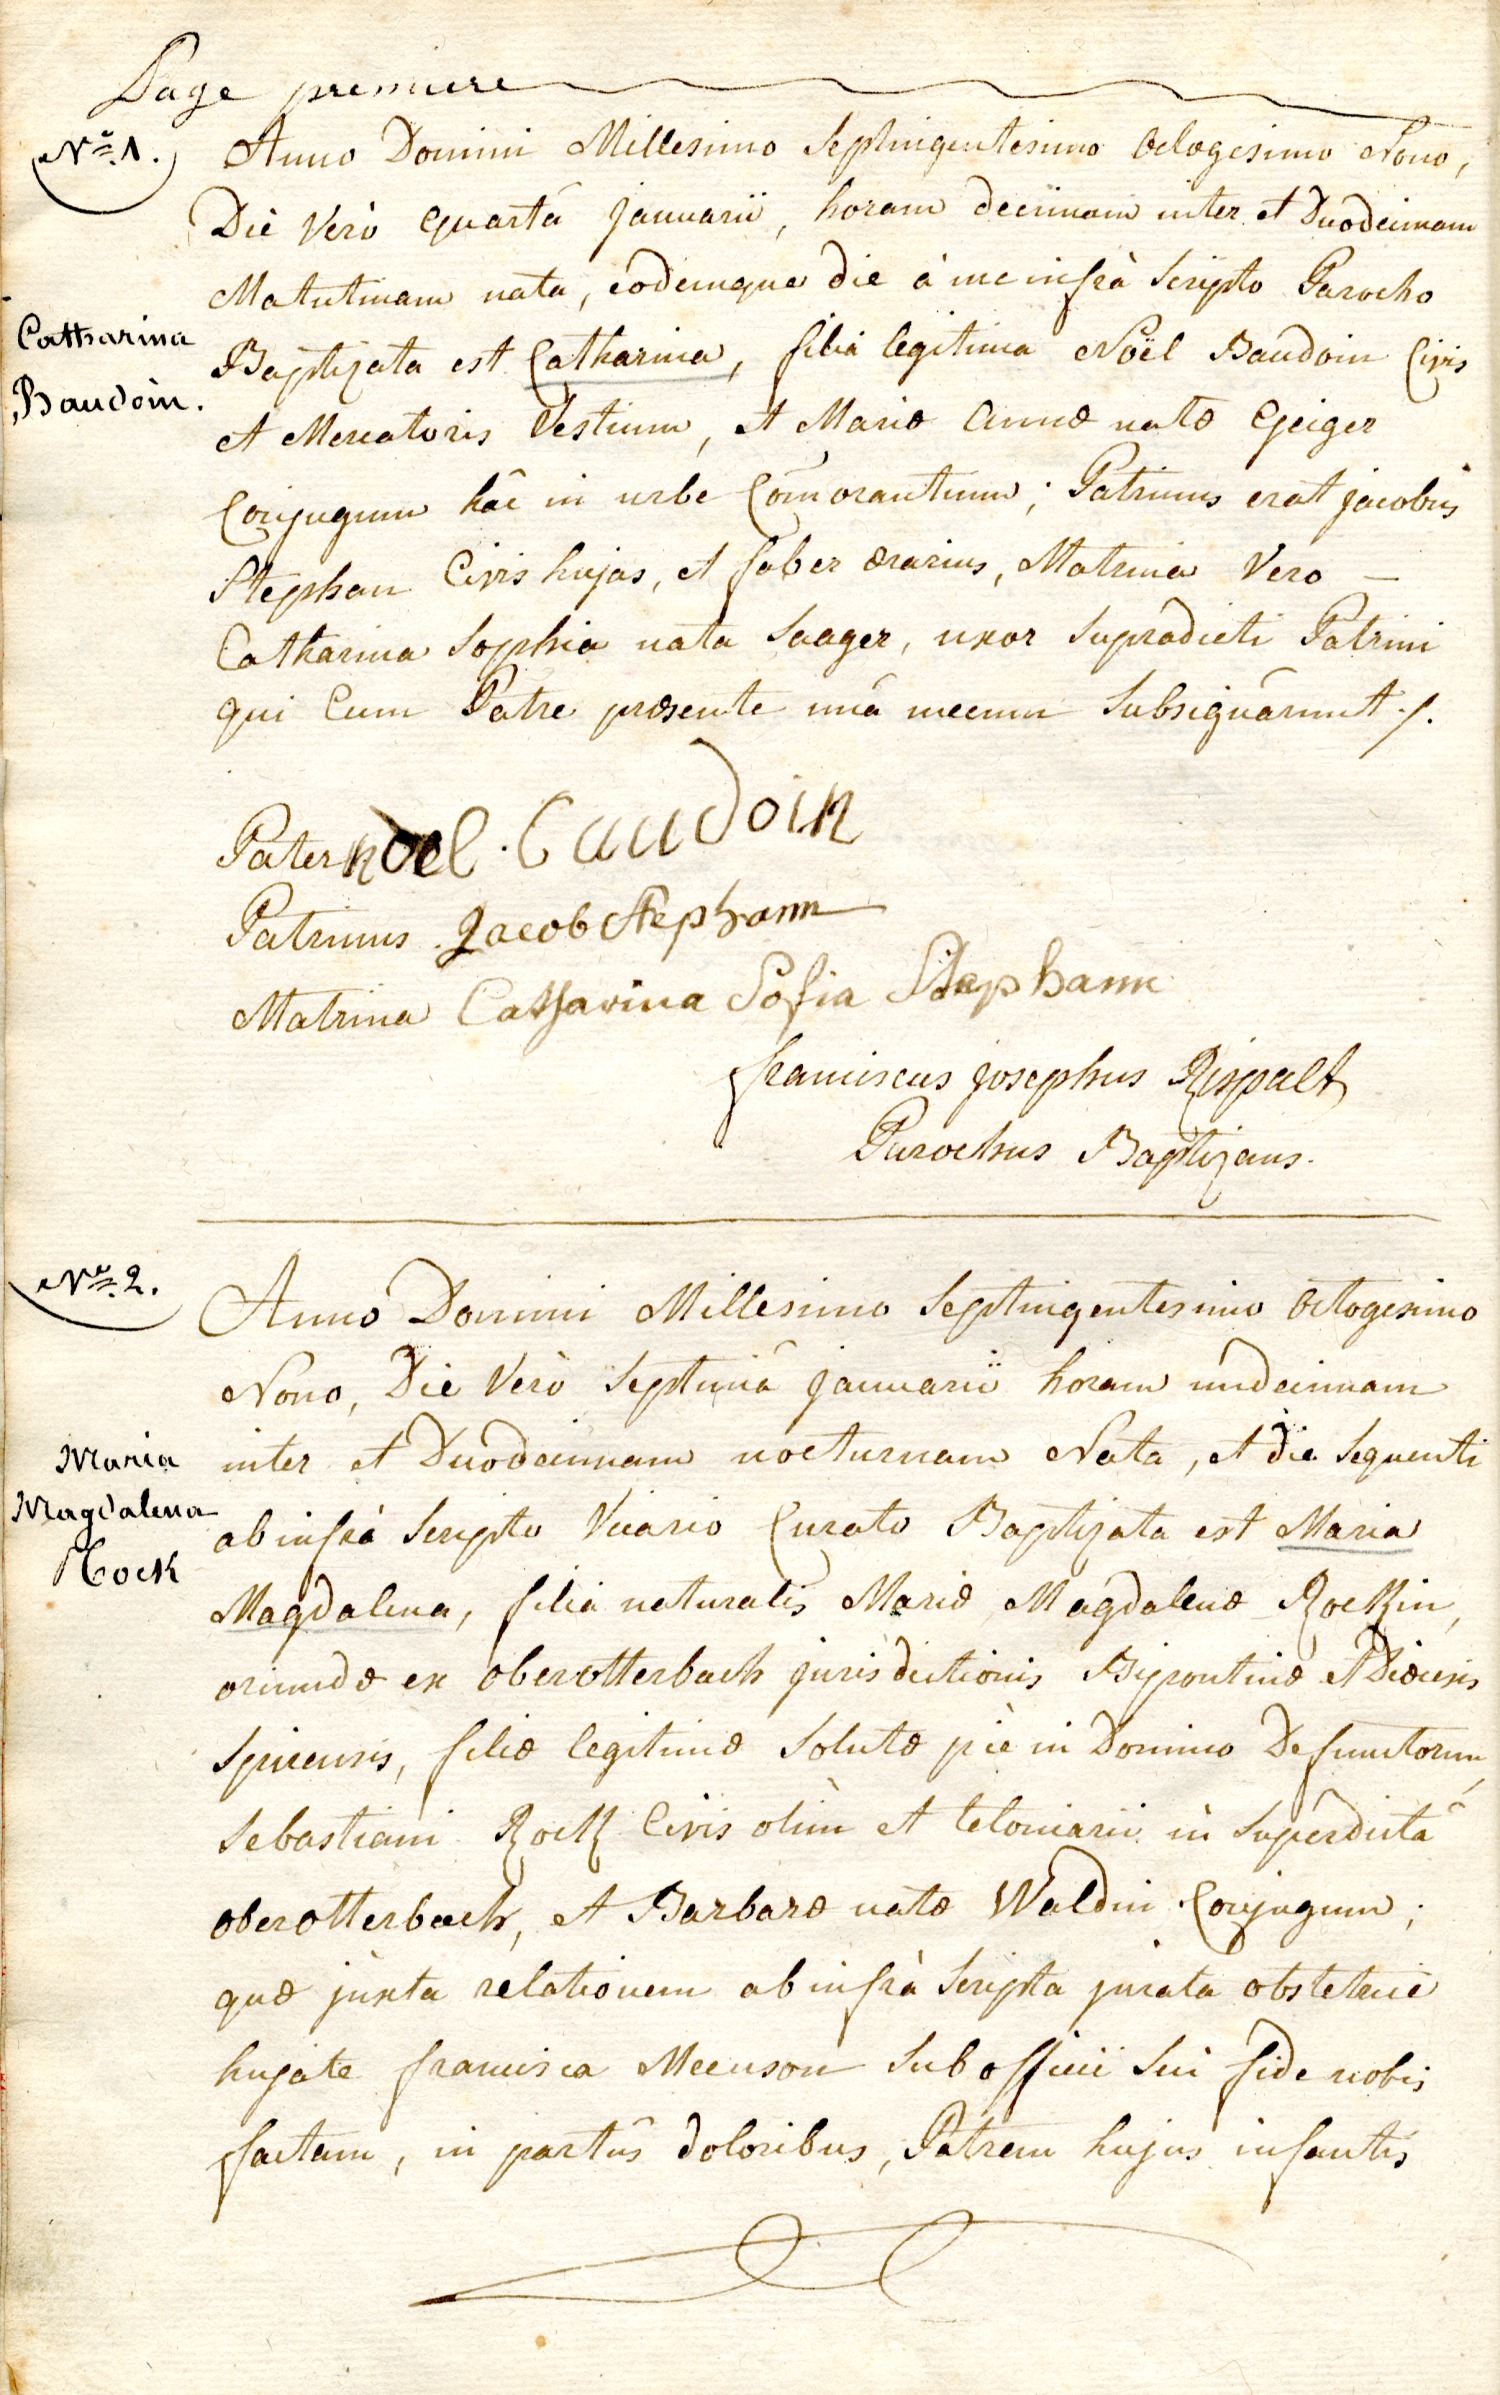 Page premiere
No. 1.
Anno Domini Millesimo Septingentesimo Octogesimo Nono,
Die Verò Quartâ januarii, horam decimam inter et Duodecimam
Matutinam nata, eôdemque die à me infrà Scripto Parocho
Catharina
Baptizata est Catharina, filia legitima Noël Baudoin Civis
Baudoin.
et Mercatoris Vestium, et Mariæ Annæ natæ Geiger
Conjugum hâc in urbe Com̃orantium; Patrinus erat jacobus
Stephan Civis hujas, et faber ærarius, Matrina Vero –
Catharina Sophia nata Saager, uxor Supradicti Patrini
qui Cum Patre præsente unâ mecum Subsignârunt ./.
Pater noel. Baudoin
Patrinus Jacob Stephann
Matrina Catharina Sofia Stephann
franciscus josephus Rispalt
Parochus Baptizans.
No. 2.
Anno Domini Millesimo Septingentesimo Octogesimo
Nono, Die Verò Septimâ januarii horam undecimam
Maria
inter et Duodecimam nocturnam Nata, et die Sequenti
Magdalena
ab infrà Scripto Vicario Curato Baptizata est Maria
Rock
Magdalena, filia naturalis Mariæ Magdalenæ Rockin,
oriundæ ex oberotterbach jurisdictionis Bipontinæ et Diœcesis
Spirensis, filiæ legitimæ Solutæ piè in Domino Defunctorum,
Sebastiani Rock Civis olim et teloniarii in Superdictâ
oberotterbach, et Barbaræ natæ Waldin Conjugum;
quæ juxta relationem ab infrà Scripta jurata obstetrice
hujate francisca Meenson Sub officii Sui fide nobis
factam, in partûs doloribus, Patrem hujus infantis